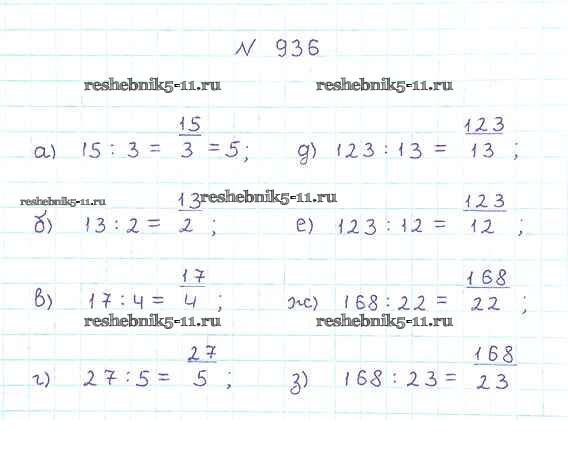 N 936
reshebnik5-11.ru reshebnik5-11.ru
а) 15 : 3 = 15/3 = 5; д) 123 : 13 = 123/13 ;
reshebnik5-11.ru reshebnik5-11.ru
б) 13 : 2 = 13/2 ; е) 123 : 12 = 123/12 ;
в) 17 : 4 = 17/4 ; ж) 168 : 22 = 168/22 ;
reshebnik5-11.ru reshebnik5-11.ru
г) 27 : 5 = 27/5 ; з) 168 : 23 = 168/23